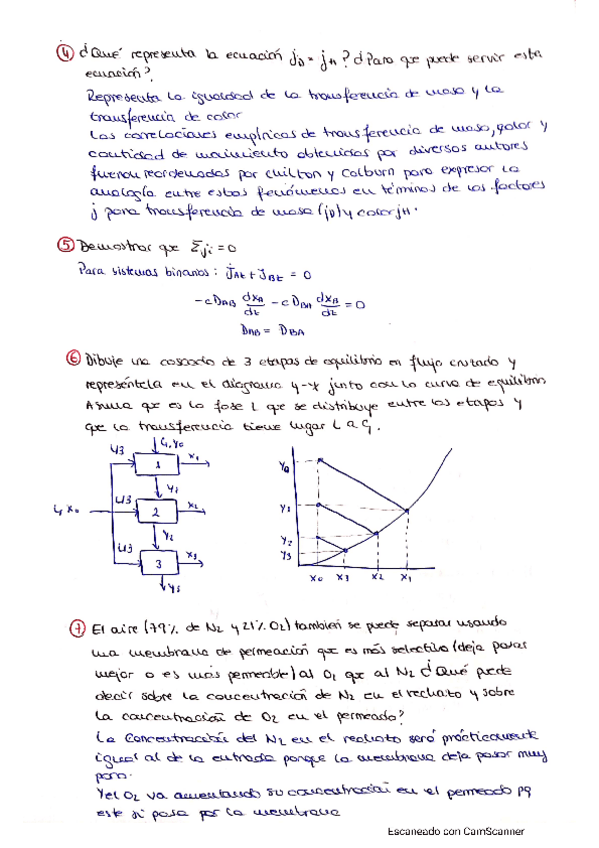 ④ ¿Qué representa la ecuación jD = jH? ¿Para que puede servir esta
ecuación?
Representa la igualdad de la transferencia de masa y la
transferencia de calor
Las correlaciones empíricas de transferencia de masa, calor y
cantidad de movimiento obtenidas por diversos autores
fueron reordenadas por Chilton y Colburn para expresar la
analogía entre estos fenómenos en términos de los factores
j para transferencia de masa (jD) y calor jH.
⑤ Demostrar que Σji = 0
Para sistemas binarios: JAz + JBz = 0
-cDAB dxA/dz - cDBA dxB/dz = 0
DAB = DBA
⑥ Dibuje una cascada de 3 etapas de equilibrio en flujo cruzado y
represéntela en el diagrama y-x junto con la curva de equilibrio.
Asuma que es la fase L que se distribuye entre las etapas y
que la transferencia tiene lugar L a G.
G, y0
L/3 1 x1
y1
L, x0 L/3 2 x2
y2
L/3 3 x3
y3
y0
y1
y2
y3
x0 x3 x2 x1
⑦ El aire (79% de N2 y 21% O2) también se puede separar usando
una membrana de permeación que es más selectiva (deja pasar
mejor o es más permeable) al O2 que al N2 ¿Qué puede
decir sobre la concentración de N2 en el rechazo y sobre
la concentración de O2 en el permeado?
La concentración del N2 en el rechato será prácticamente
igual al de la entrada porque la membrana deja pasar muy
poro.
Y el O2 va aumentando su concentración en el permeado pq
este si pasa por la membrana
Escaneado con CamScanner